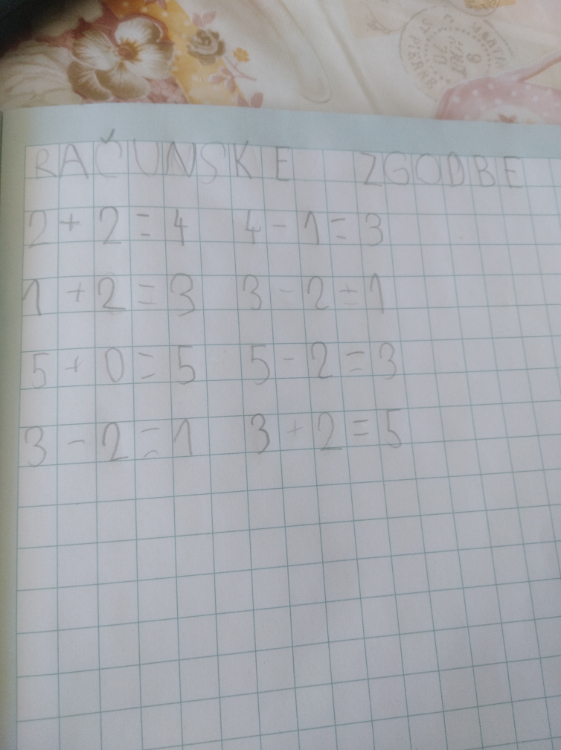 RAČUNSKE ZGODBE
2 + 2 = 4 4 - 1 = 3
1 + 2 = 3 3 - 2 = 1
5 + 0 = 5 5 - 2 = 3
3 - 2 = 1 3 + 2 = 5